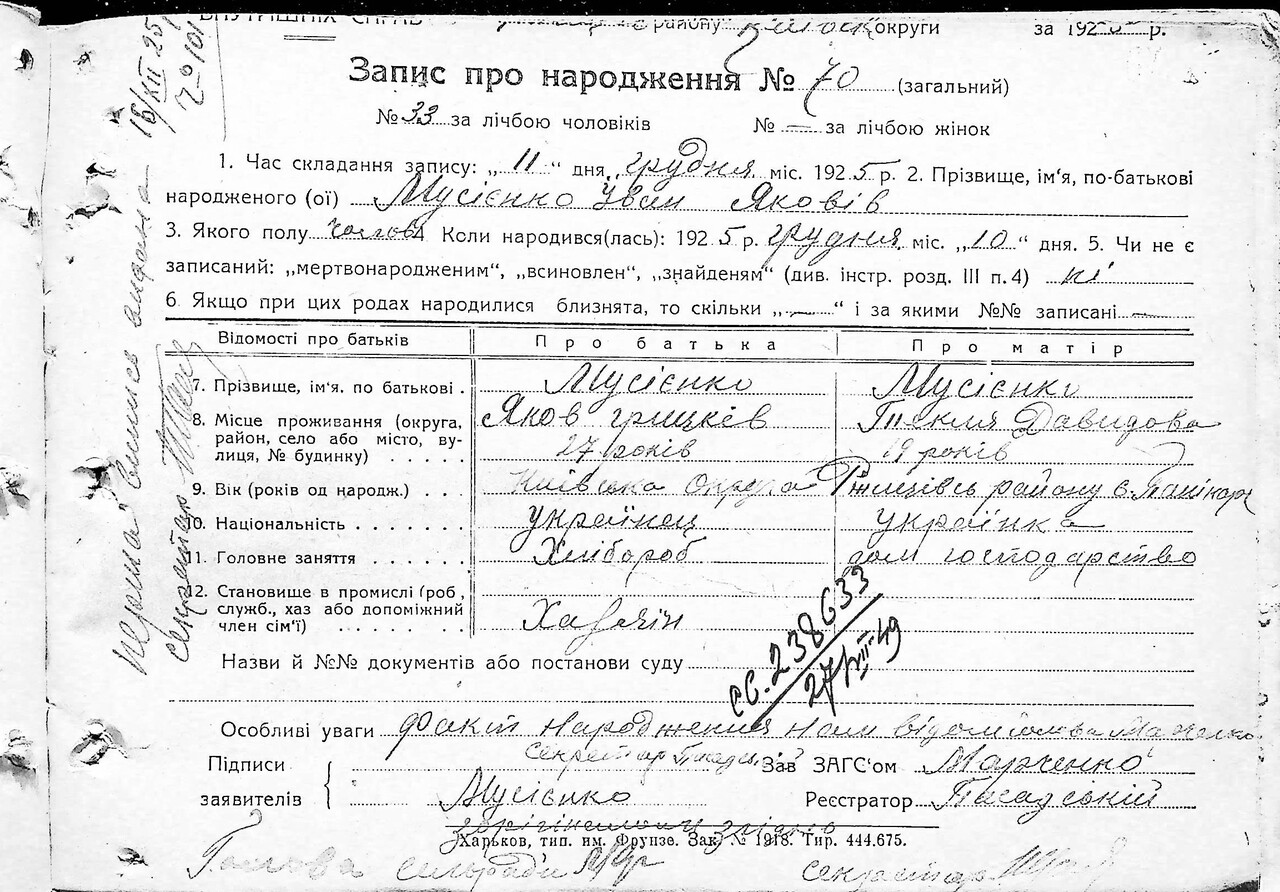 ВНУТРІШНІХ СПРАВ району округи за 192 р.
Запис про народження № 70 (загальний)
№ 33 за лічбою чоловіків № — за лічбою жінок
1. Час складання запису: „ 11 “ дня грудня міс. 192 5 р. 2. Прізвище, ім'я, по-батькові
народженого (ої) Мусієнко Іван Яковів
3. Якого полу чолов Коли народився(лась): 192 5 р. грудня міс. „ 10 “ дня. 5. Чи не є
записаний: „мертвонародженим“, „всиновлен“, „знайденям“ (див. інстр. розд. III п. 4) ні
6. Якщо при цих родах народилися близнята, то скільки „ — “ і за якими №№ записані —
Відомості про батьків Про батька Про матір
7. Прізвище, ім'я. по батькові . Мусієнко Мусієнко
8. Місце проживання (округа, Яков Грицків Текля Давидова
район, село або місто, ву-
лиця, № будинку) . . . . . 27 років 19 років
9. Вік (років од народж.) . . . Київська округа Ржищівсь району с.
10. Національність . . . . . . . українец українка
11. Головне заняття . . . . . . Хлібороб дом господарство
12. Становище в промислі (роб.,
служб., хаз або допоміжний
член сім'ї) . . . . . . . Хазяїн
Назви й №№ документів або постанови суду
СС. 238633
27/VIII 49
Особливі уваги Факт народження нам відомий
Підписи секретар Зав ЗАГС'ом Марченко
заявителів Мусієнко Реєстратор
Харьков, тип. им. Фрунзе. Зак. № 1918. Тир. 444.675.
Голова сельради секретар
16/XII 25
№ 101
секретарь